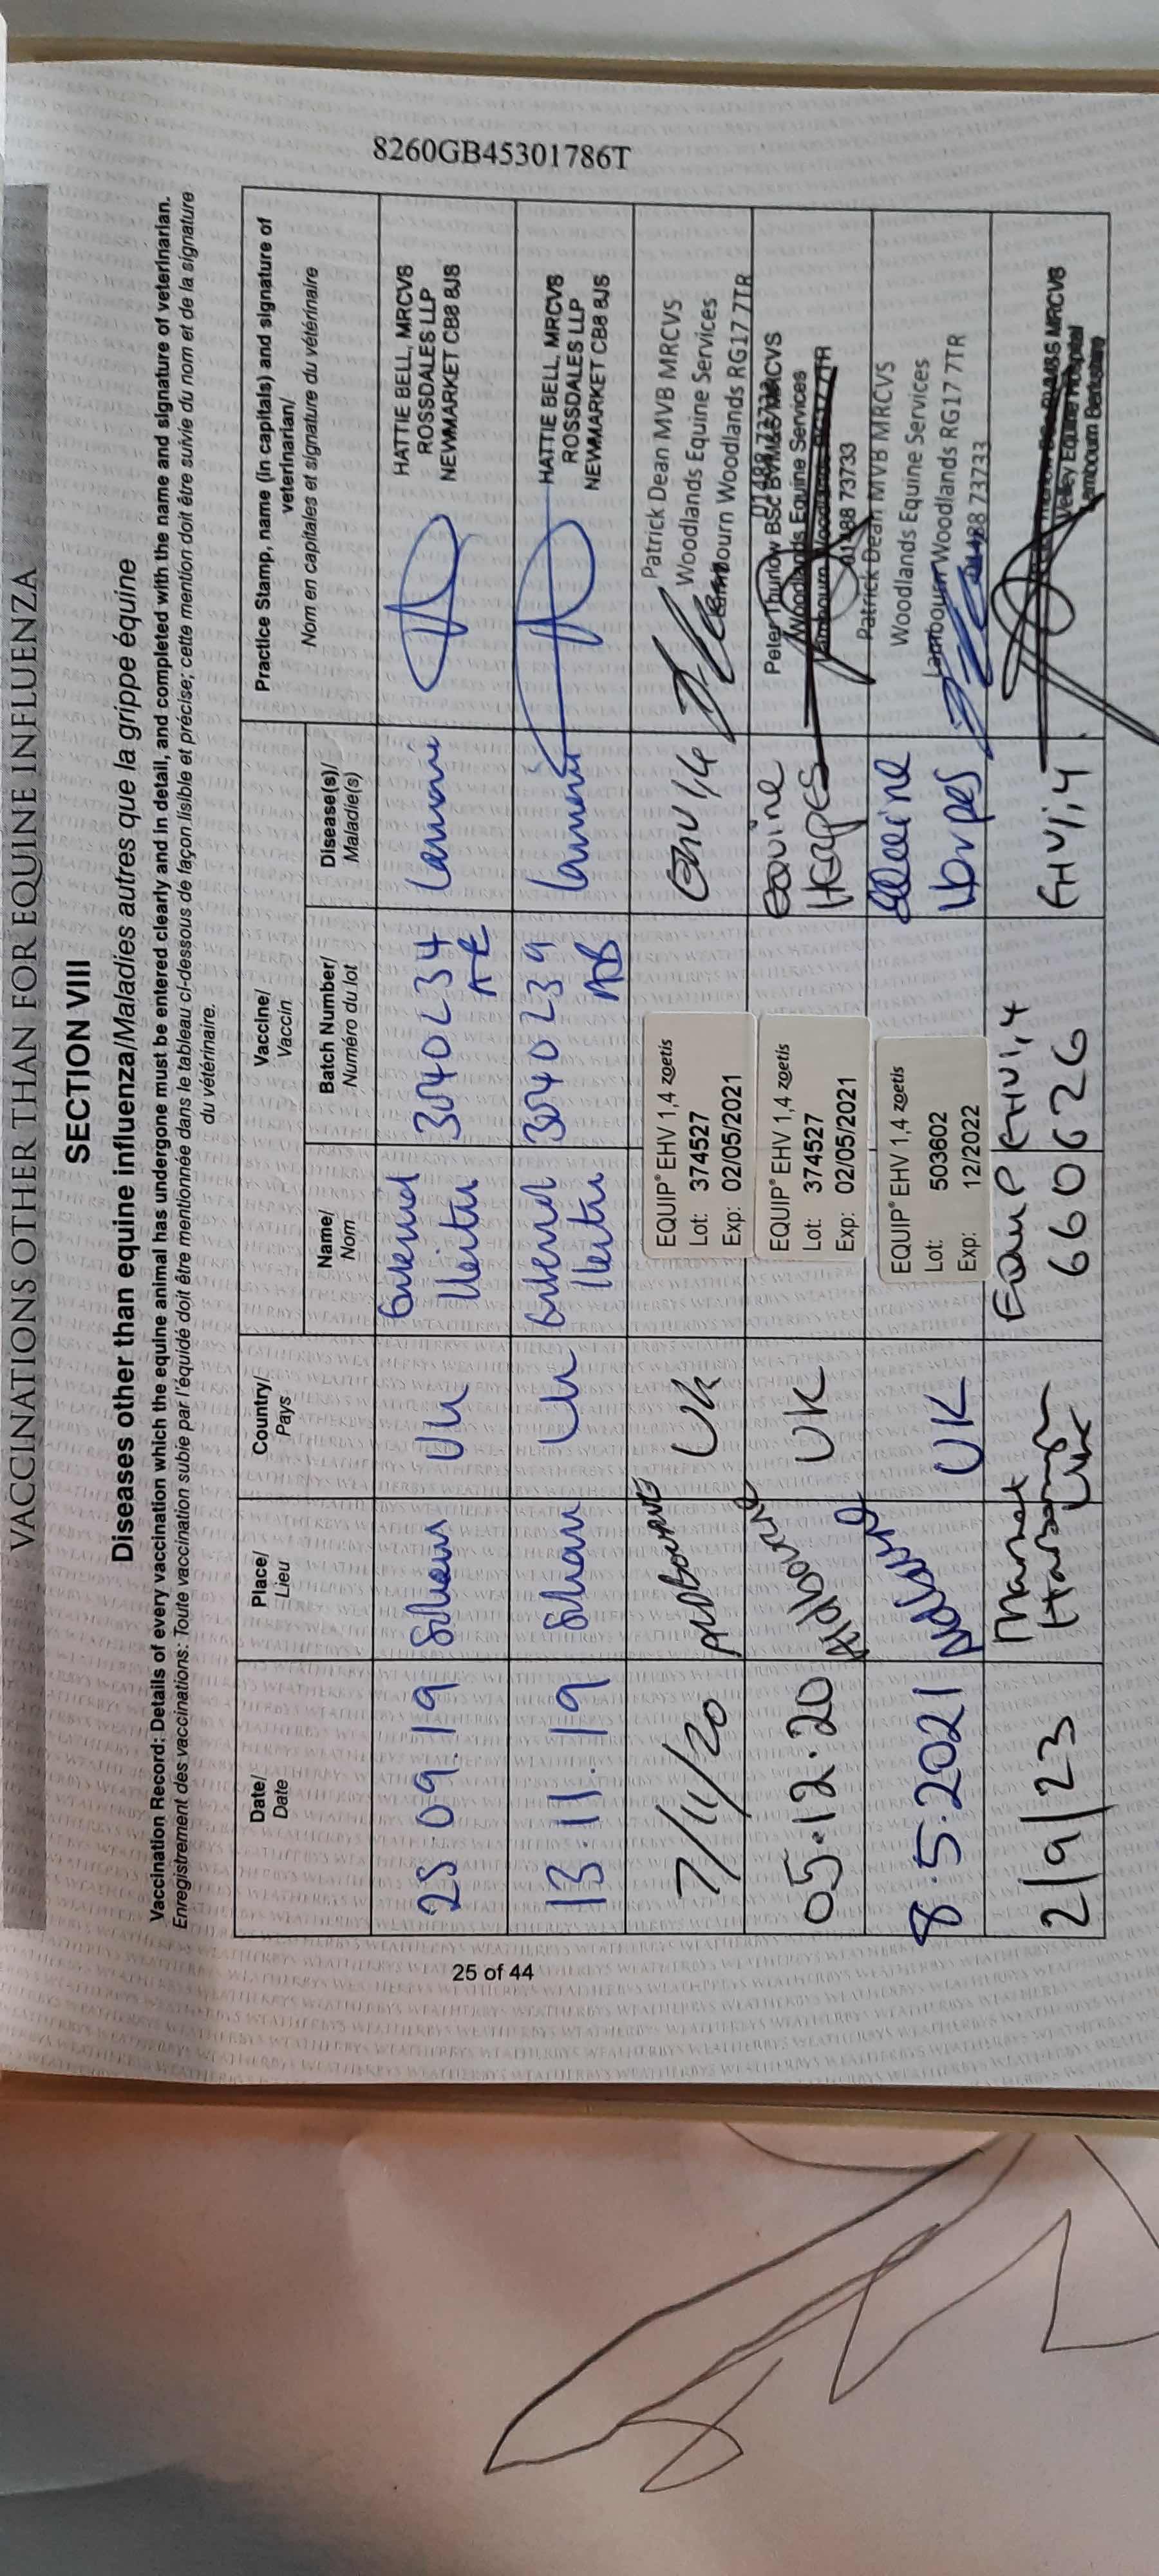 VACCINATIONS OTHER THAN FOR EQUINE INFLUENZA
SECTION VIII
Diseases other than equine influenza/Maladies autres que la grippe équine
Vaccination Record: Details of every vaccination which the equine animal has undergone must be entered clearly and in detail, and completed with the name and signature of veterinarian.
Enregistrement des vaccinations: Toute vaccination subie par l'équidé doit être mentionnée dans le tableau ci-dessous de façon lisible et précise; cette mention doit être suivie du nom et de la signature
du vétérinaire.
Date/
Date
Place/
Lieu
Country/
Pays
Vaccine/
Vaccin
Name/
Nom
Batch Number/
Numéro du lot
Disease(s)/
Maladie(s)
Practice Stamp, name (in capitals) and signature of
veterinarian/
Nom en capitales et signature du vétérinaire
25 09.19
UK
3040234
HATTIE BELL, MRCVS
ROSSDALES LLP
NEWMARKET CB8 8JS
13.11.19
UK
3040239
HATTIE BELL, MRCVS
ROSSDALES LLP
NEWMARKET CB8 8JS
7/11/20
ALDBOURNE
UK
EQUIP® EHV 1,4 zoetis
Lot: 374527
Exp: 02/05/2021
EHV 1/4
Patrick Dean MVB MRCVS
Woodlands Equine Services
Lambourn Woodlands RG17 7TR
01488 73733
05.12.20
Aldbourne
UK
EQUIP® EHV 1,4 zoetis
Lot: 374527
Exp: 02/05/2021
Equine
Herpes
Peter Thurlow BSc BVM&S MRCVS
Woodlands Equine Services
Lambourn Woodlands RG17 7TR
01488 73733
8.5.2021
Aldbourne
UK
EQUIP® EHV 1,4 zoetis
Lot: 503602
Exp: 12/2022
Equine
herpes
Patrick Dean MVB MRCVS
Woodlands Equine Services
Lambourn Woodlands RG17 7TR
01488 73733
2/9/23
UK
Equip EHV1,4
660626
EHV1,4
MRCVS
Valley Equine Hospital
Lambourn Berkshire
25 of 44
8260GB45301786T